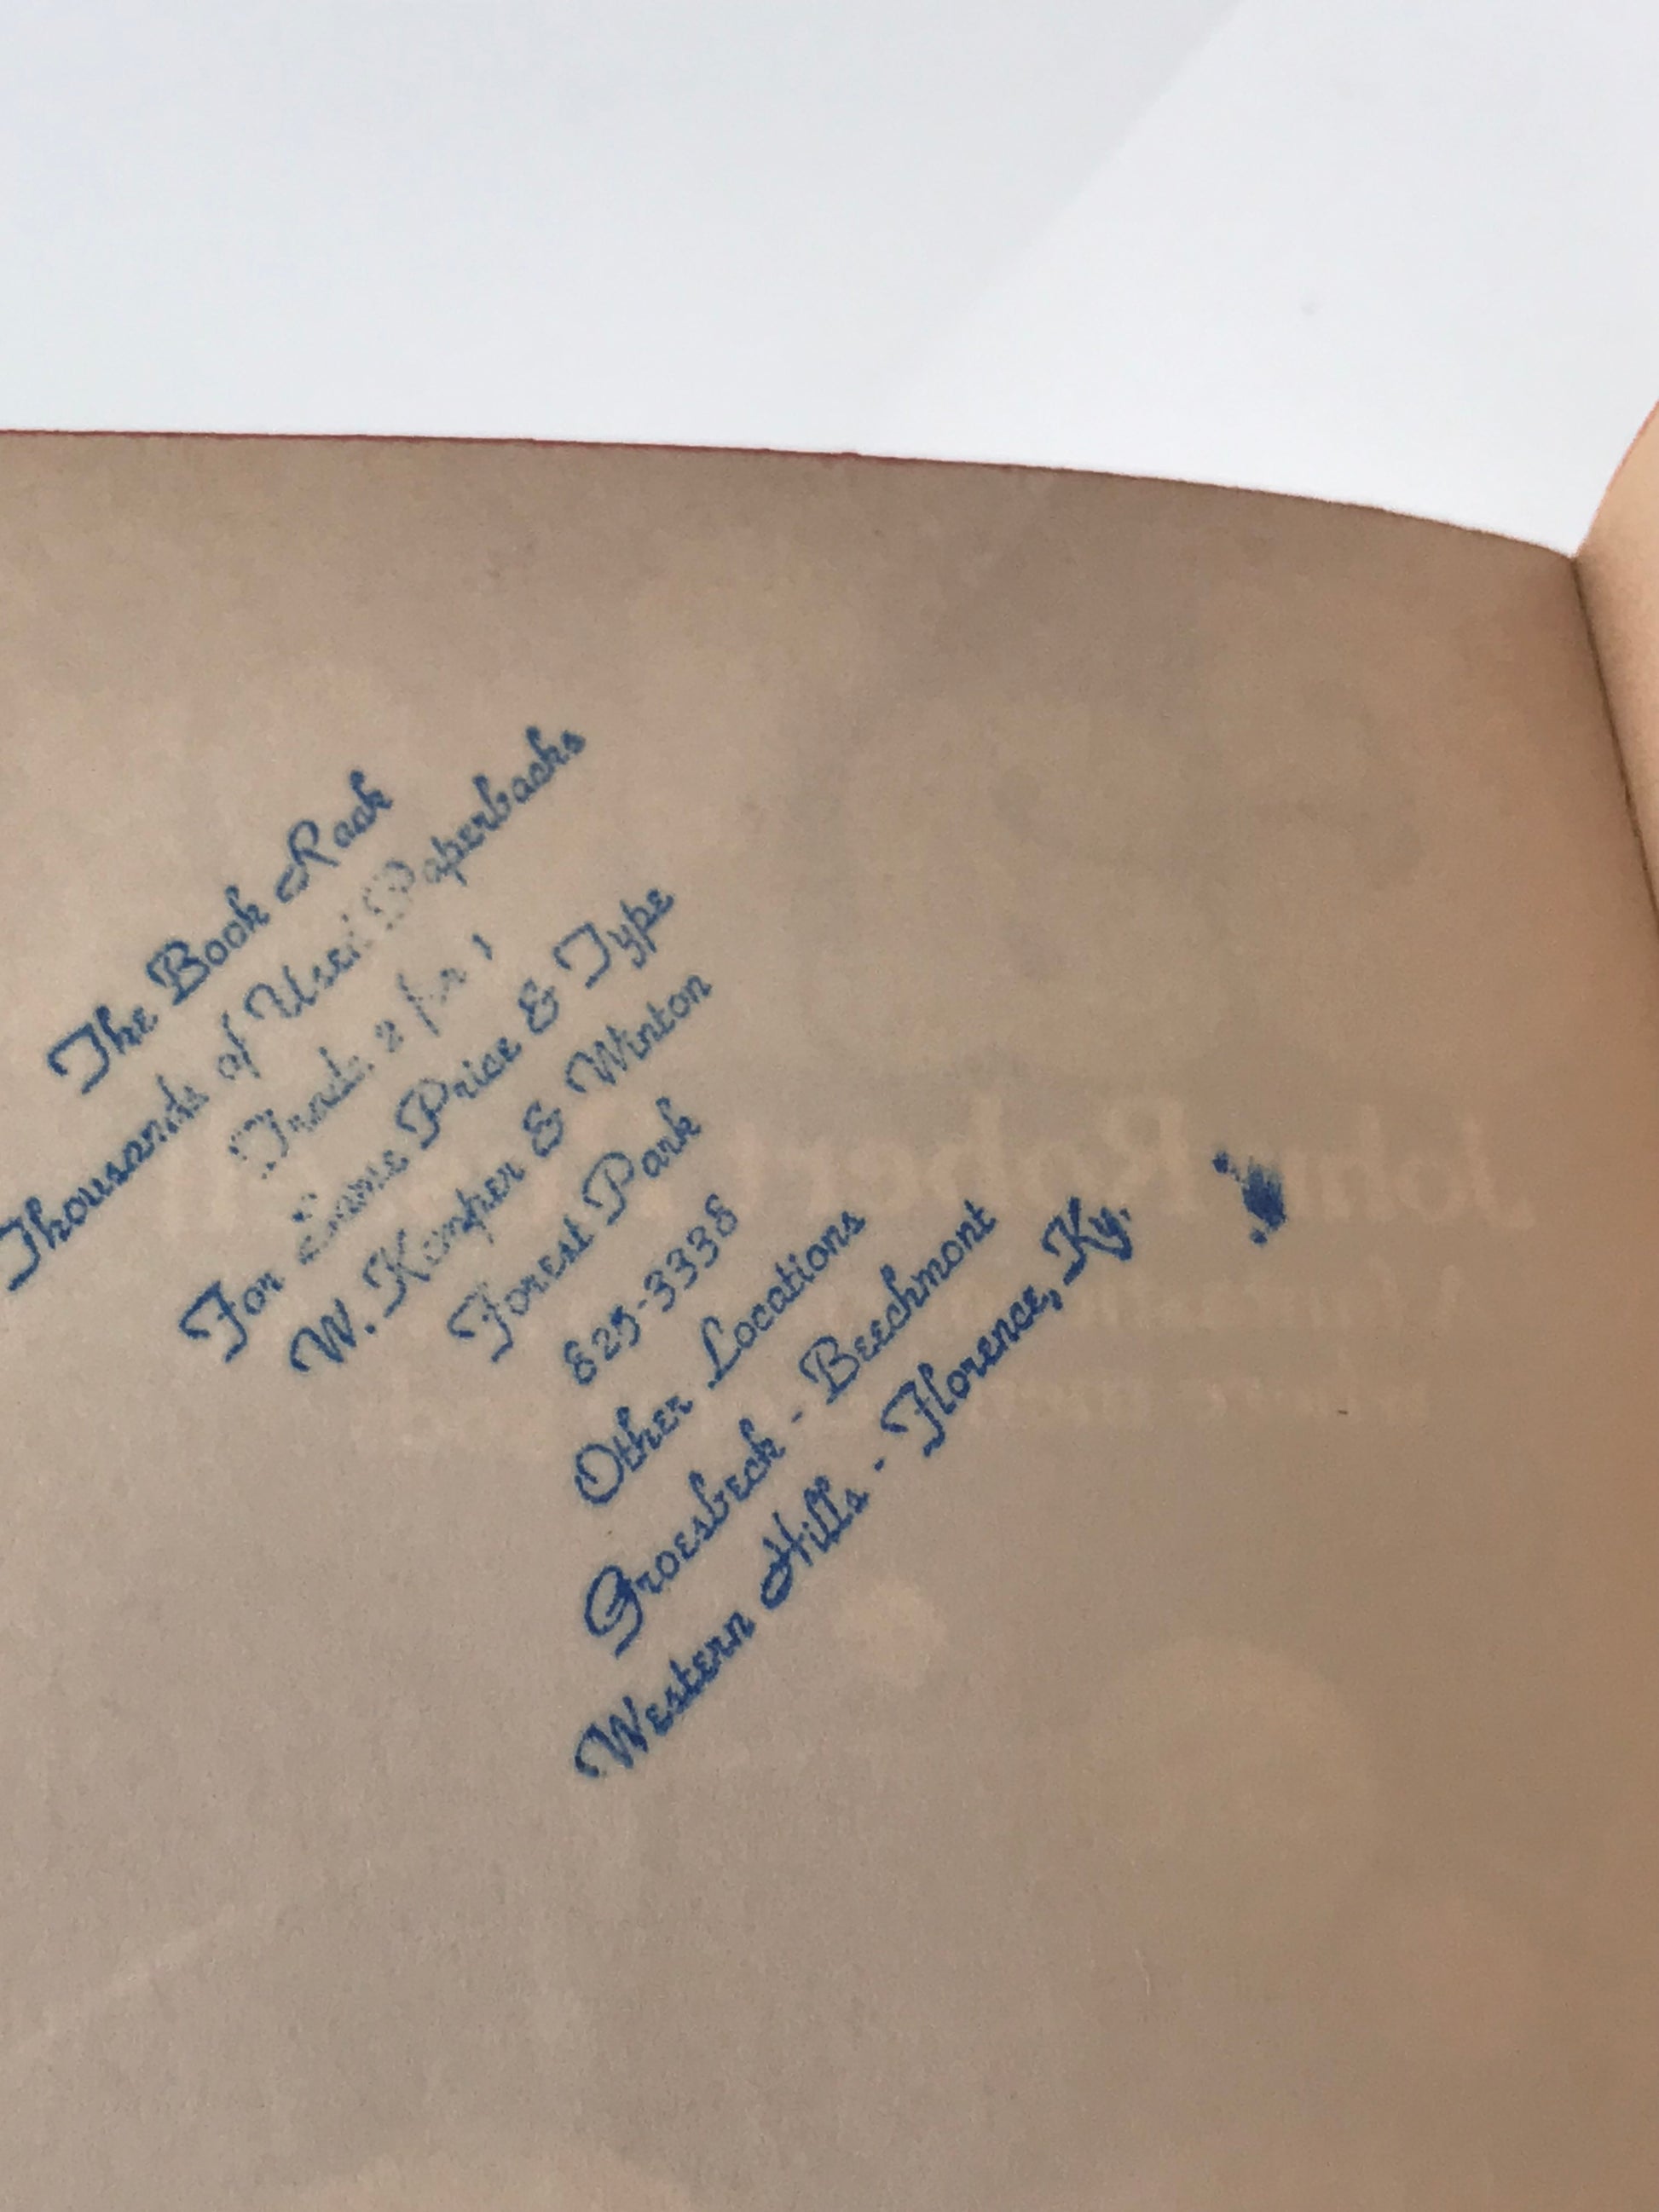 The Book Rack
Thousands of Used Paperbacks
Trade 2 for 1
For Same Price & Type
W. Kemper & Winton
Forest Park
825-3338
Other Locations
Groesbeck - Beechmont
Western Hills - Florence, Ky.